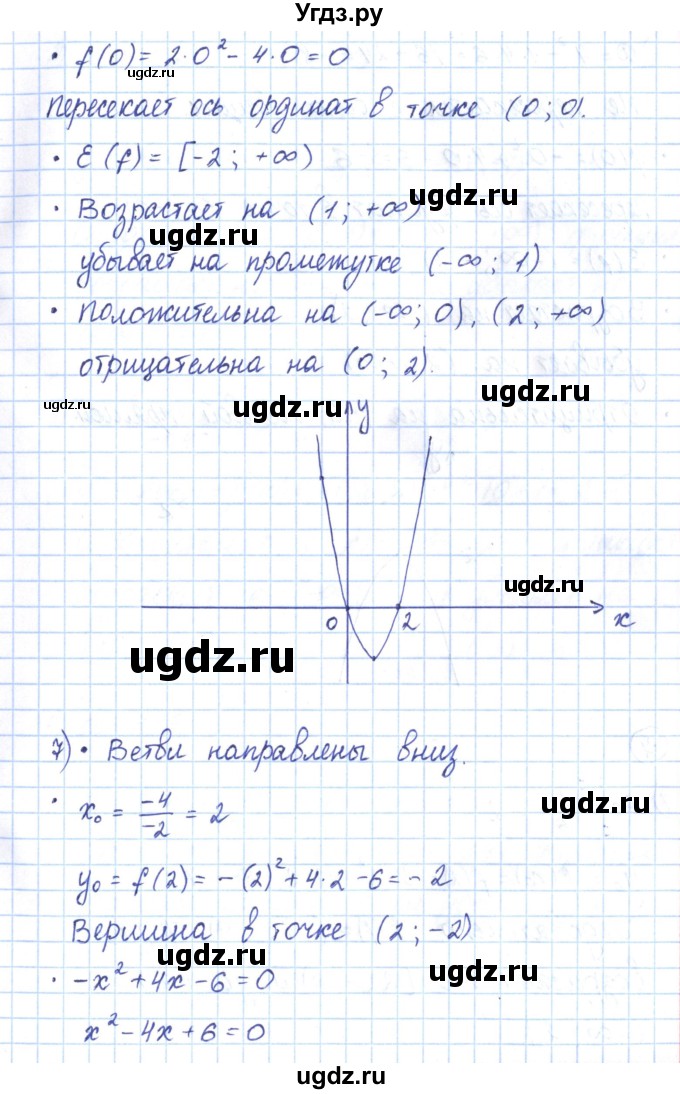 Угдз.ру
• f(0) = 2·0² - 4·0 = 0
ugdz.ru
Пересекает ось ординат в точке (0; 0).
• E(f) = [-2; +∞)
ugdz.ru
• Возрастает на (1; +∞)
ugdz.ru
ugdz.ru
убывает на промежутке (-∞; 1)
• Положительна на (-∞; 0), (2; +∞)
отрицательна на (0; 2).
ugdz.ru
ugdz.ru
ugdz.ru
y
ugdz.ru
0 2 x
ugdz.ru
7) • Ветви направлены вниз.
• x₀ = -4/-2 = 2
ugdz.ru
y₀ = f(2) = -(2)² + 4·2 - 6 = -2
Вершина в точке (2; -2)
ugdz.ru
ugdz.ru
• -x² + 4x - 6 = 0
x² - 4x + 6 = 0
ugdz.ru